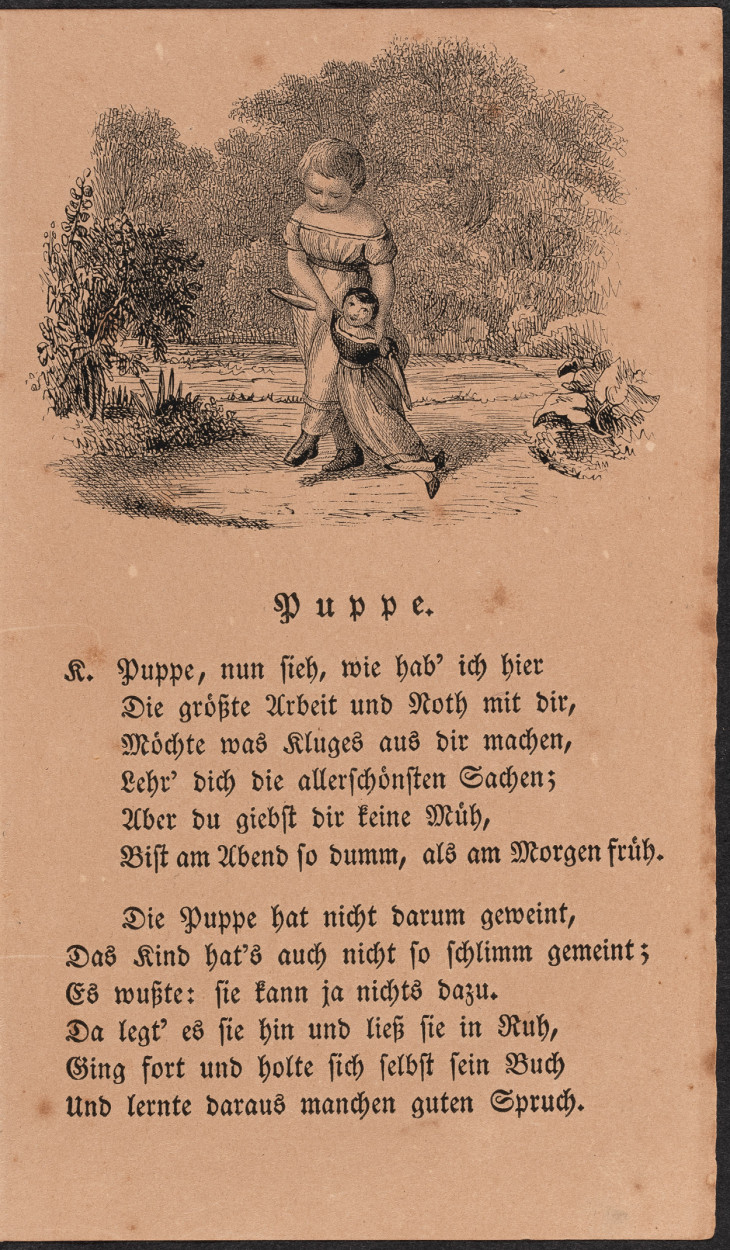 Puppe.
K. Puppe, nun sieh, wie hab' ich hier
Die größte Arbeit und Noth mit dir,
Möchte was Kluges aus dir machen,
Lehr' dich die allerschönsten Sachen;
Aber du giebst dir keine Müh,
Bist am Abend so dumm, als am Morgen früh.
Die Puppe hat nicht darum geweint,
Das Kind hat's auch nicht so schlimm gemeint;
Es wußte: sie kann ja nichts dazu.
Da legt' es sie hin und ließ sie in Ruh,
Ging fort und holte sich selbst sein Buch
Und lernte daraus manchen guten Spruch.